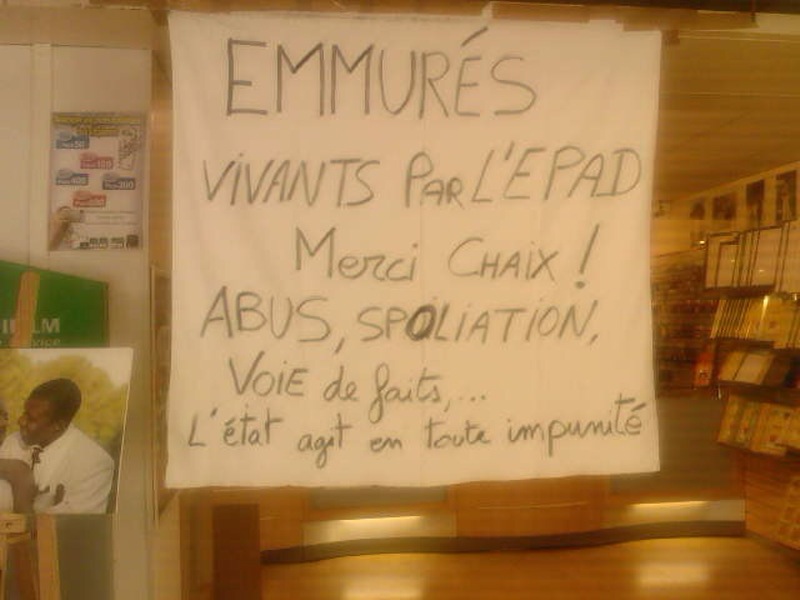 EMMURÉS
VIVANTS PAR L'EPAD
Merci CHAIX !
ABUS, SPOLIATION,
VOIE de faits,...
L'état agit en toute impunité